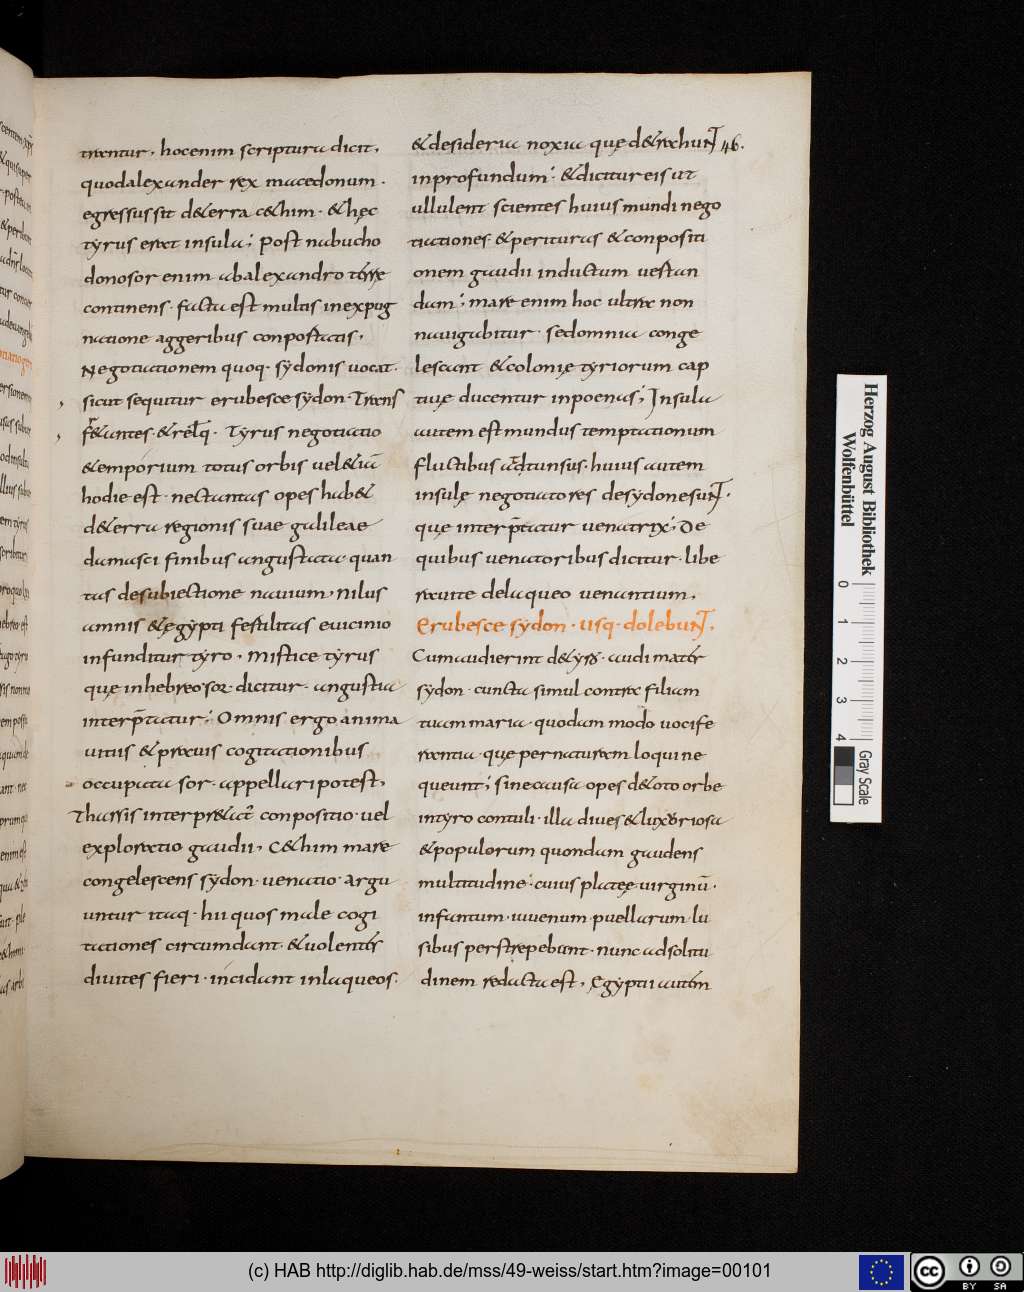 trentur, hocenim scriptura dicit,
quodalexander rex macedonum.
egressus sit de terra cethim. & hęc
tyrus erat insula; Post nabucho
donosor enim abalexandro terre
continens. facta est multis inexpug
natione aggeribus conpostatis,
Negotiationem quoq. sydonis uocat.
sicut sequitur erubesce sydon. Trans
fr&antes. & relq. Tyrus negotiatio
& emporium totus orbis uel &iā
hodie est. nec tantas opes hab&
d&erra regionis suae galileae
damasci finibus angustata quan
tas desubiectione nauium, nilus
amnis & ęgypti fertilitas euicinio
infunditur tyro, Mistice tyrus
quę inhebreo sor dicitur. angustia
interp̄tatur; Omnis ergo anima
uitiis & prauis cogitationibus
occupata sor. appellari potest,
Tharsis interpr&atr̄ conpositio. uel
exploratio gaudii, C&him mare
congelescens sydon. uenatio. Argu
untur itaq. hii quos male cogi
tationes circumdant. & uolentes
diuites fieri. incidunt inlaqueos.
& desideria noxia quę d&rahunt 46.
inprofundum; & dicitur eis ut
ullulent scientes huius mundi nego
tiationes. & perituras & conpositi
onem gaudii inductum uestan
dam; mare enim hoc ultra non
nauigabitur. sedomnia conge
lescant & colonię tyriorum cap
tiuę ducentur inpoenas; Insula
autem est mundus temptationum
fluctibus adtunsus. huius autem
insulę negotiatores desydonesunt.
quę interp̄tatur uenatrix; De
quibus uenatoribus dicitur. libe
rauit me delaqueo uenantium,
Erubesce sydon. usq. dolebunt,
Cumaudierint d&yro. audi mater
sydon. cuncta simul contra filiam
tuam maria. quodam modo uocife
rantia. quę pernaturam loqui ne
queunt; sinecausa opes d&oto orbe
intyro contuli. illa diues & luxoriosa
& populorum quondam gaudens
multitudine. cuius plateę uirginū.
infantum. iuuenum. puellarum lu
sibus perstrepebant. nunc adsolitu
dinem redacta est, Egyptii autem
Herzog August Bibliothek
Wolfenbüttel
0 1 2 3 4
Gray Scale
(c) HAB http://diglib.hab.de/mss/49-weiss/start.htm?image=00101
cc BY SA